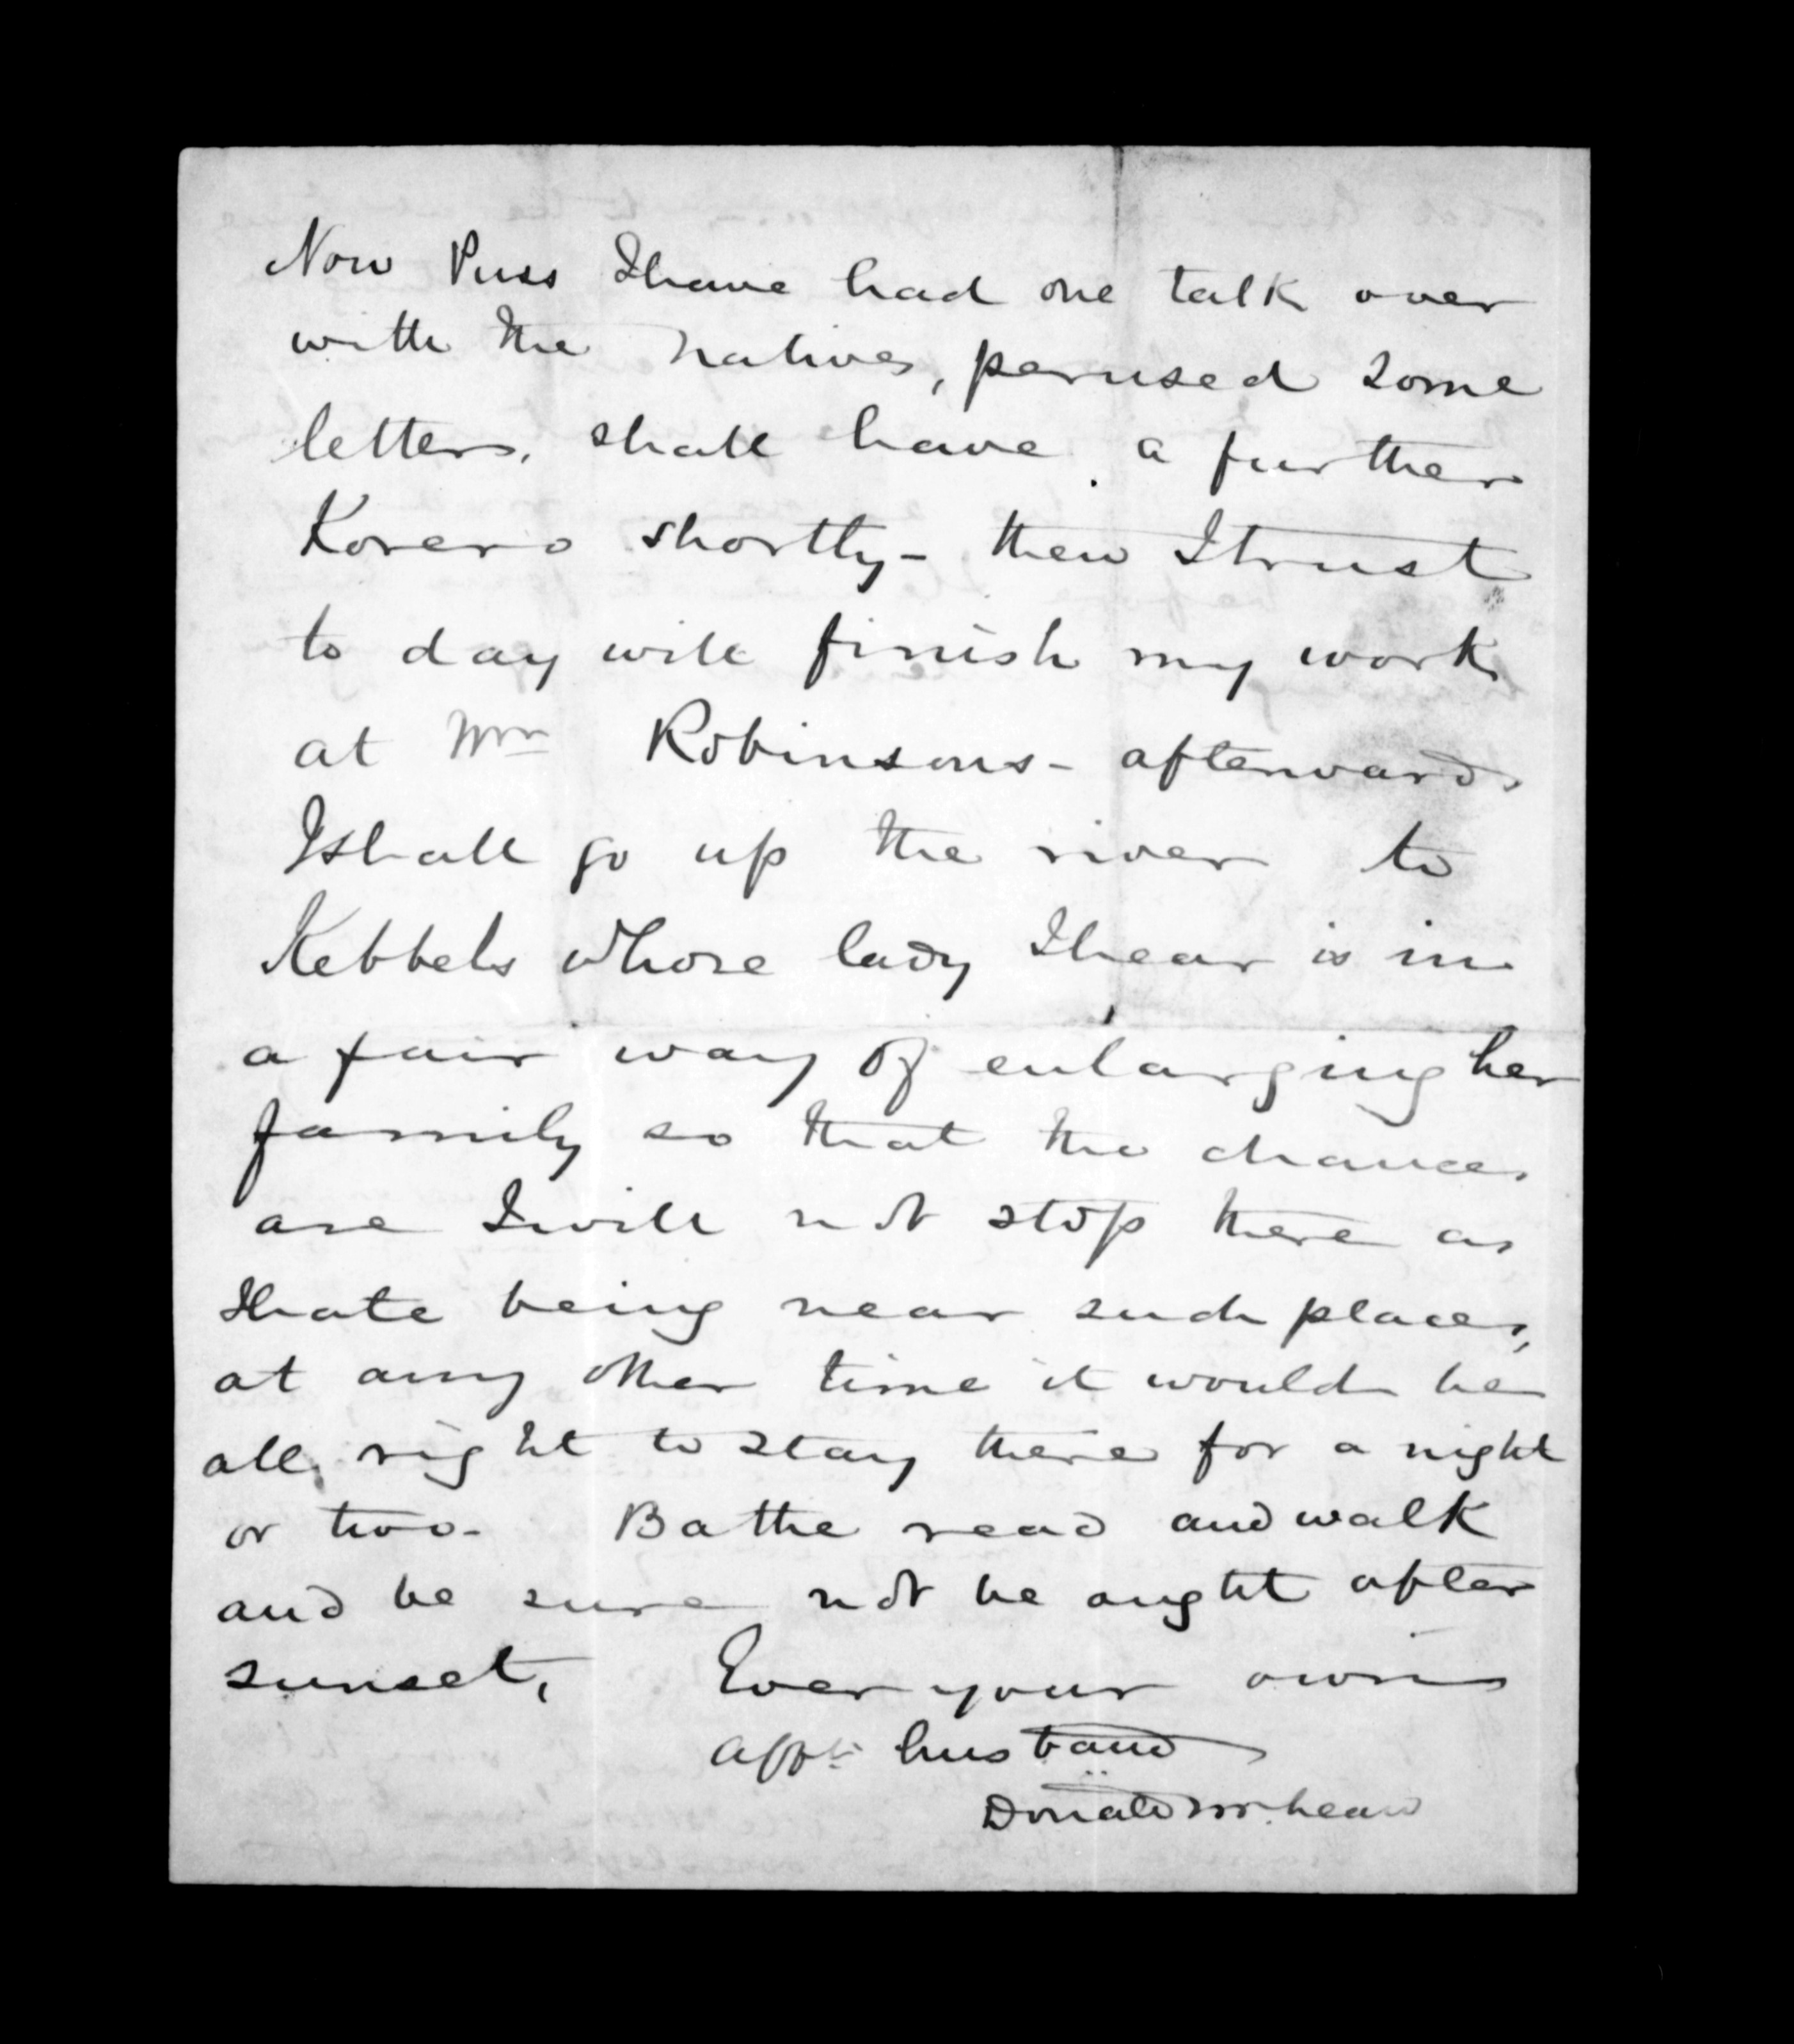 Now Puss I have had one talk over
with the natives, perused some
letters, shall have a further
Korero shortly - then I trust
to day will finish my work
at Mrs Robinsons - afterwards
I shall go up the river to
Kebbels whose lady I hear is in
a fair way of enlarging her
family so that the chances
are I will not stop there as
I hate being near such places,
at any other time it would be
all right to stay there for a night
or two - Bathe read and walk
and be sure not be ought after
sunset, Ever your own
affte husband
Donald McLean